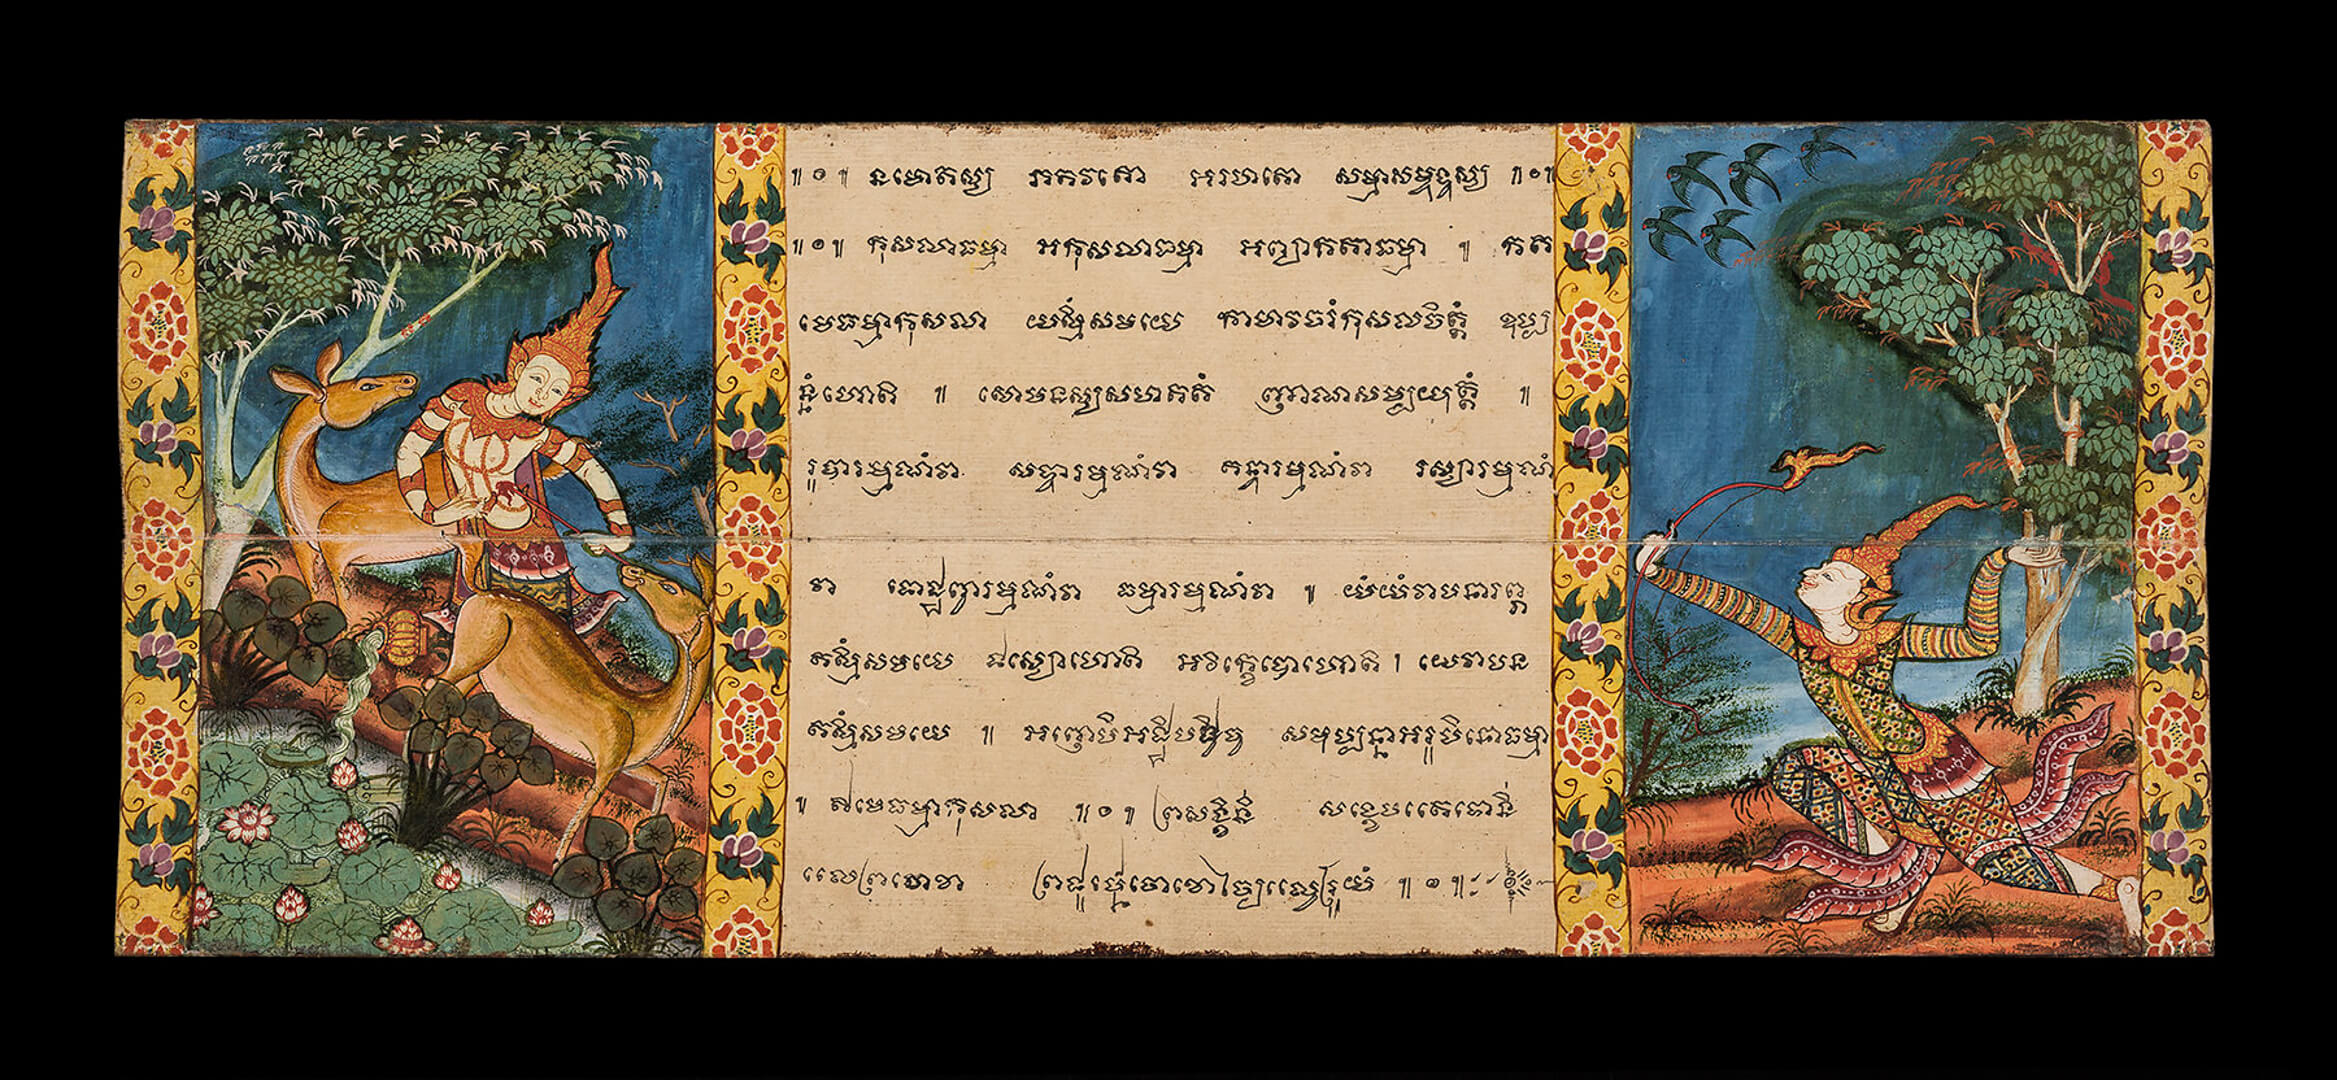 ៕០៕ នមោតស្ស ភគវតោ អរហតោ សម្មាសម្ពុទ្ធស្ស ៕០៕
៕០៕ កុសលាធម្មា អកុសលាធម្មា អព្យាកតាធម្មា ៕ កត
មេធម្មាកុសលា យស្មឹសមយេ កាមាវចរំកុសលចិត្តំ ឧប្ប
ន្នំហោតិ ៕ សោមនស្សសហគតំ ញាណសម្បយុត្តំ ៕
រូបារម្មណំវា សទ្ទារម្មណំវា គន្ធារម្មណំវា រស្សារម្មណំ
វា ផោដ្ឋព្វារម្មណំវា ធម្មារម្មណំវា ៕ យំយំវាបនារព្ភ
តស្មឹសមយេ ផស្សោហោតិ អវិក្ខេបោហោតិ ។ យេវាបន
តស្មឹសមយេ ៕ អញ្ញេបិអត្ថិបដិច្ច សមុប្បន្នាអរូបិណោធម្មា
៕ ឥមេធម្មាកុសលា ៕០៕